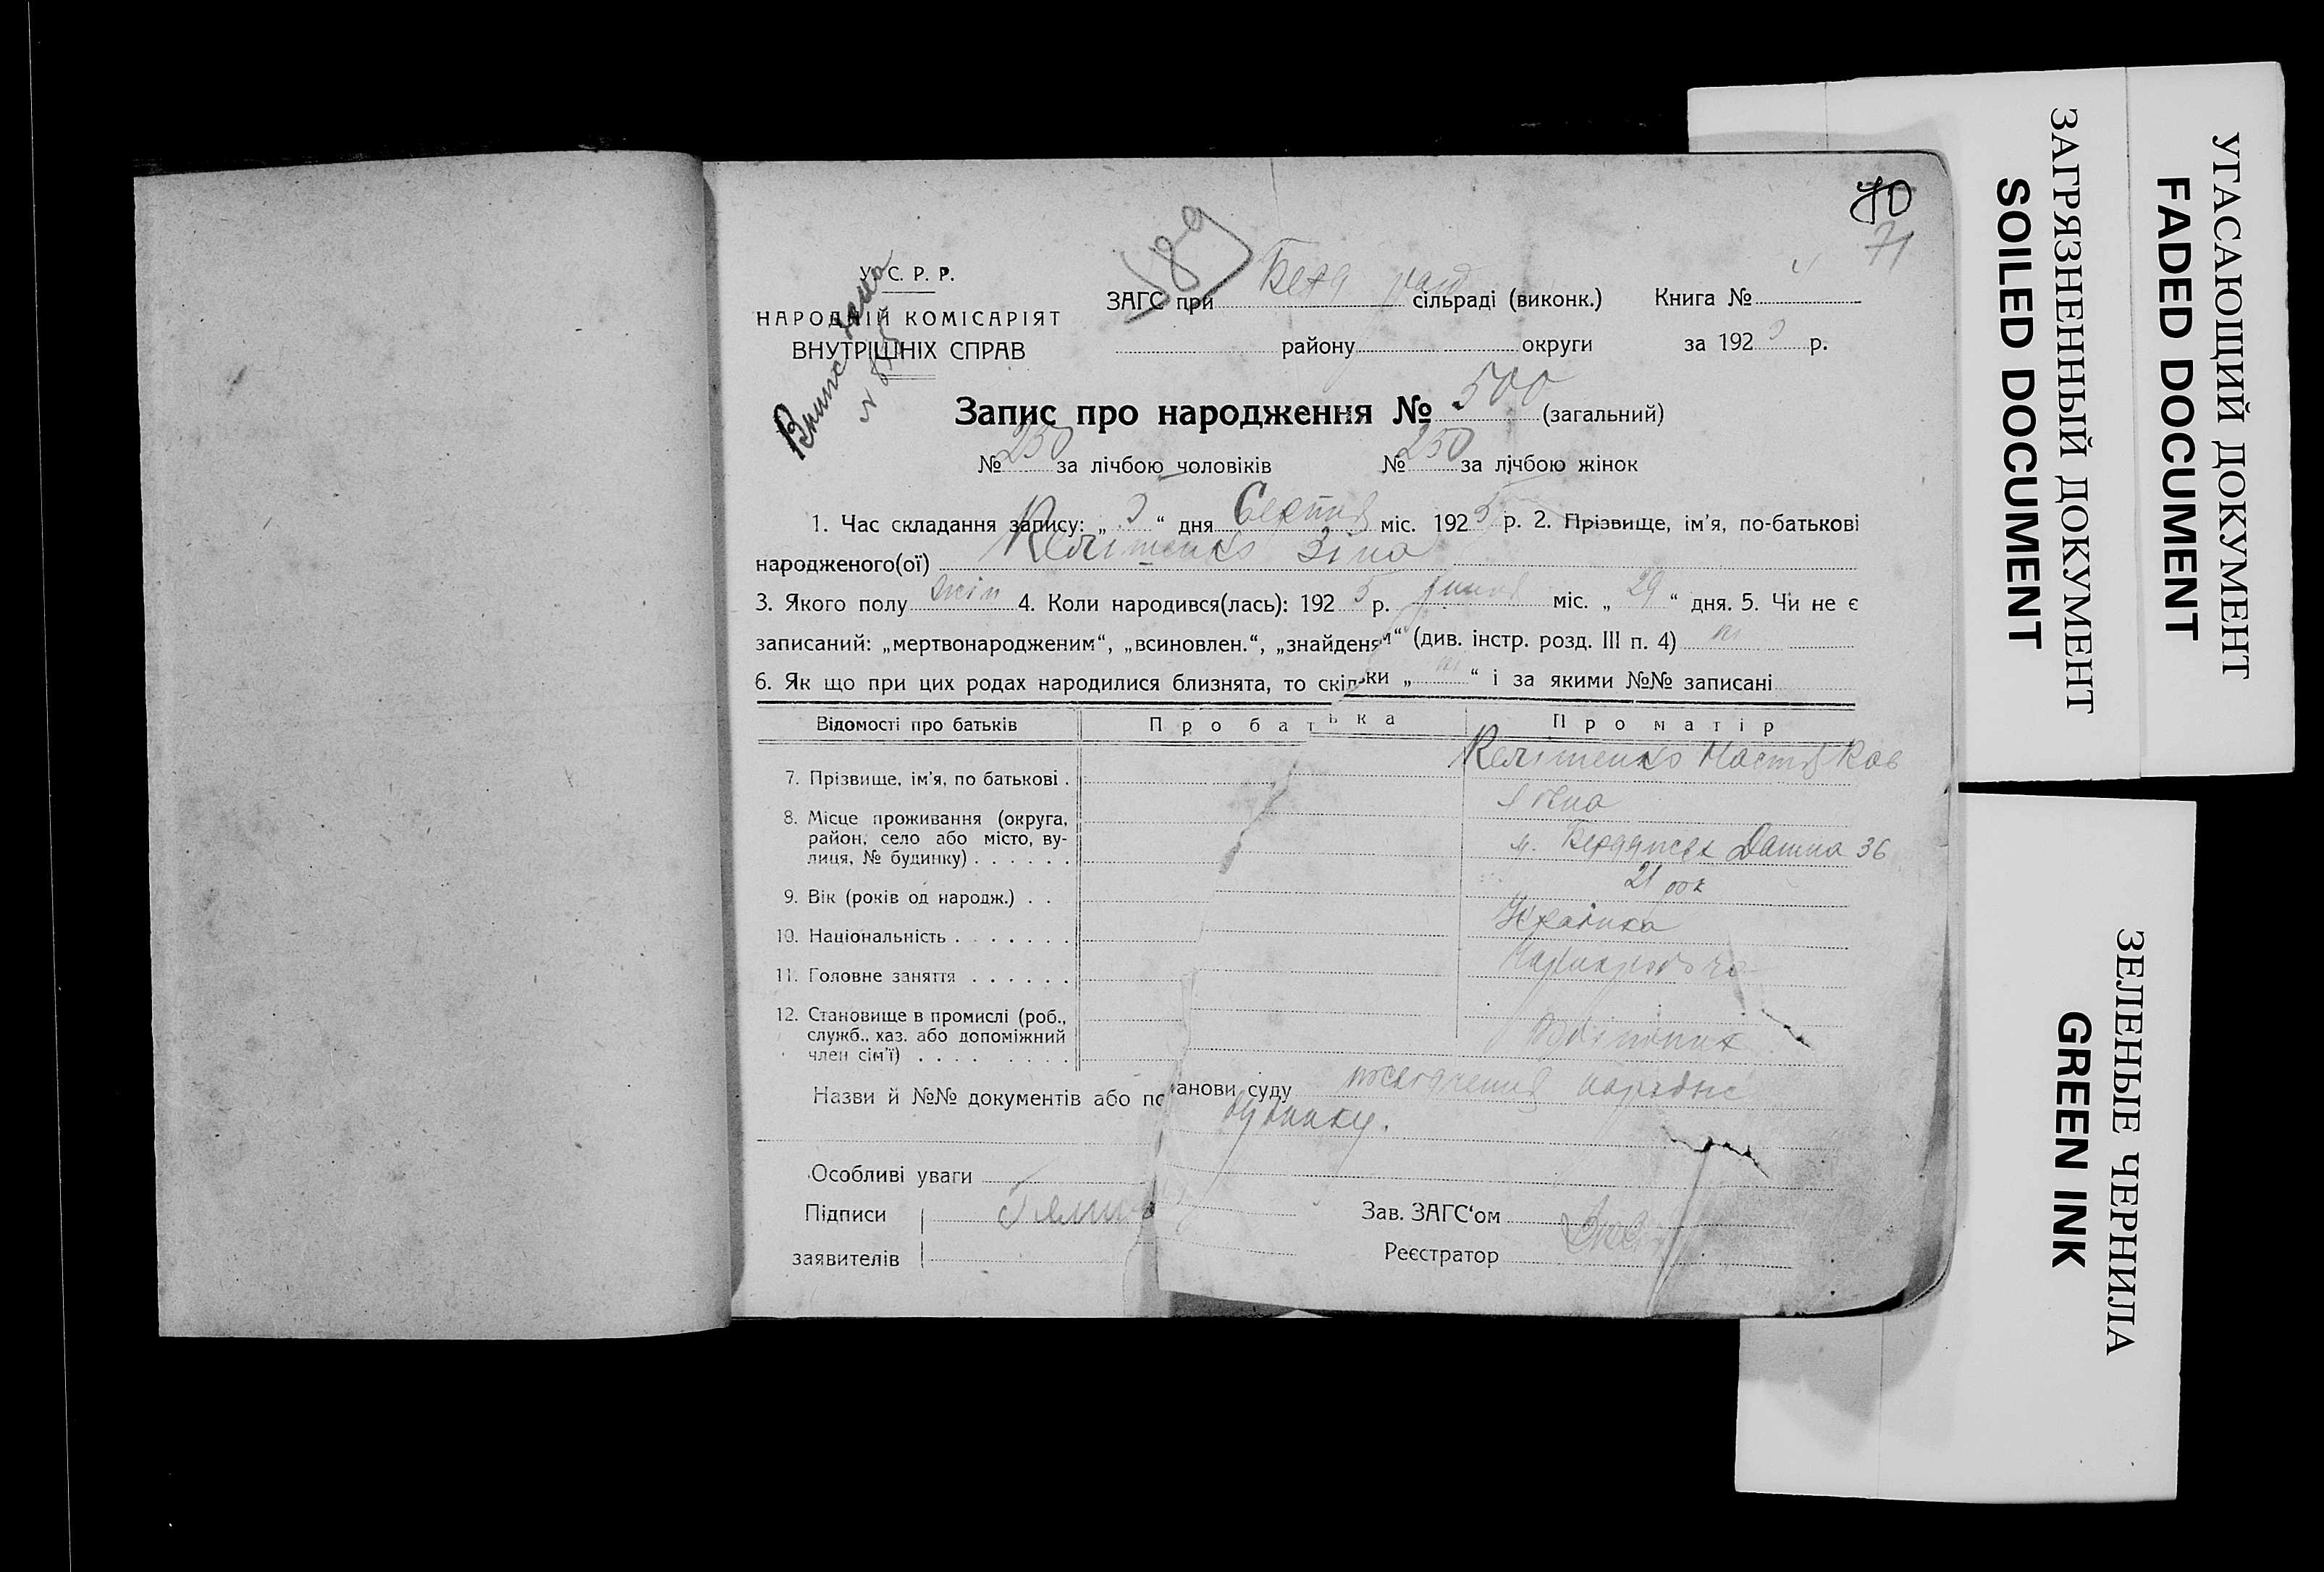 70
71
189
У. С. Р. Р.
НАРОДНІЙ КОМІСАРІЯТ
ВНУТРІШНІХ СПРАВ
ЗАГС при сільраді (виконк.) Книга №
району округи за 192 р.
Запис про народження № 500 (загальний)
№ 250 за лічбою чоловіків № 250 за лічбою жінок
1. Час складання запису: „ “ дня Серпня міс. 1925 р. 2. Прізвище, ім’я, по-батькові
народженого(ої) Зіна
3. Якого полу жін 4. Коли народився(лась): 1925 р. міс. „ 29 “ дня. 5. Чи не є
записаний: „мертвонародженим“, „всиновлен.“, „знайденям“ (див. інстр. розд. III п. 4) ні
6. Як що при цих родах народилися близнята, то скільки „ ні “ і за якими №№ записані
Відомості про батьків Про батька Про матір
7. Прізвище, ім’я, по батькові . Настя Яков
івна
8. Місце проживання (округа,
район, село або місто, ву-
лиця, № будинку) . . . . . . м. Бердянськ 36
9. Вік (років од народж.) . . 21 рок
10. Національність . . . . . . . Українка
11. Головне заняття . . . . . .
12. Становище в промислі (роб.,
служб., хаз. або допоміжний
член сім’ї) . . . . . . . .
Назви й №№ документів або постанови суду посвідчення
будинку.
Особливі уваги
Підписи Зав. ЗАГС‘ом
заявителів Реєстратор
УГАСАЮЩИЙ ДОКУМЕНТ
FADED DOCUMENT
ЗАГРЯЗНЕННЫЙ ДОКУМЕНТ
SOILED DOCUMENT
ЗЕЛЕНЫЕ ЧЕРНИЛА
GREEN INK